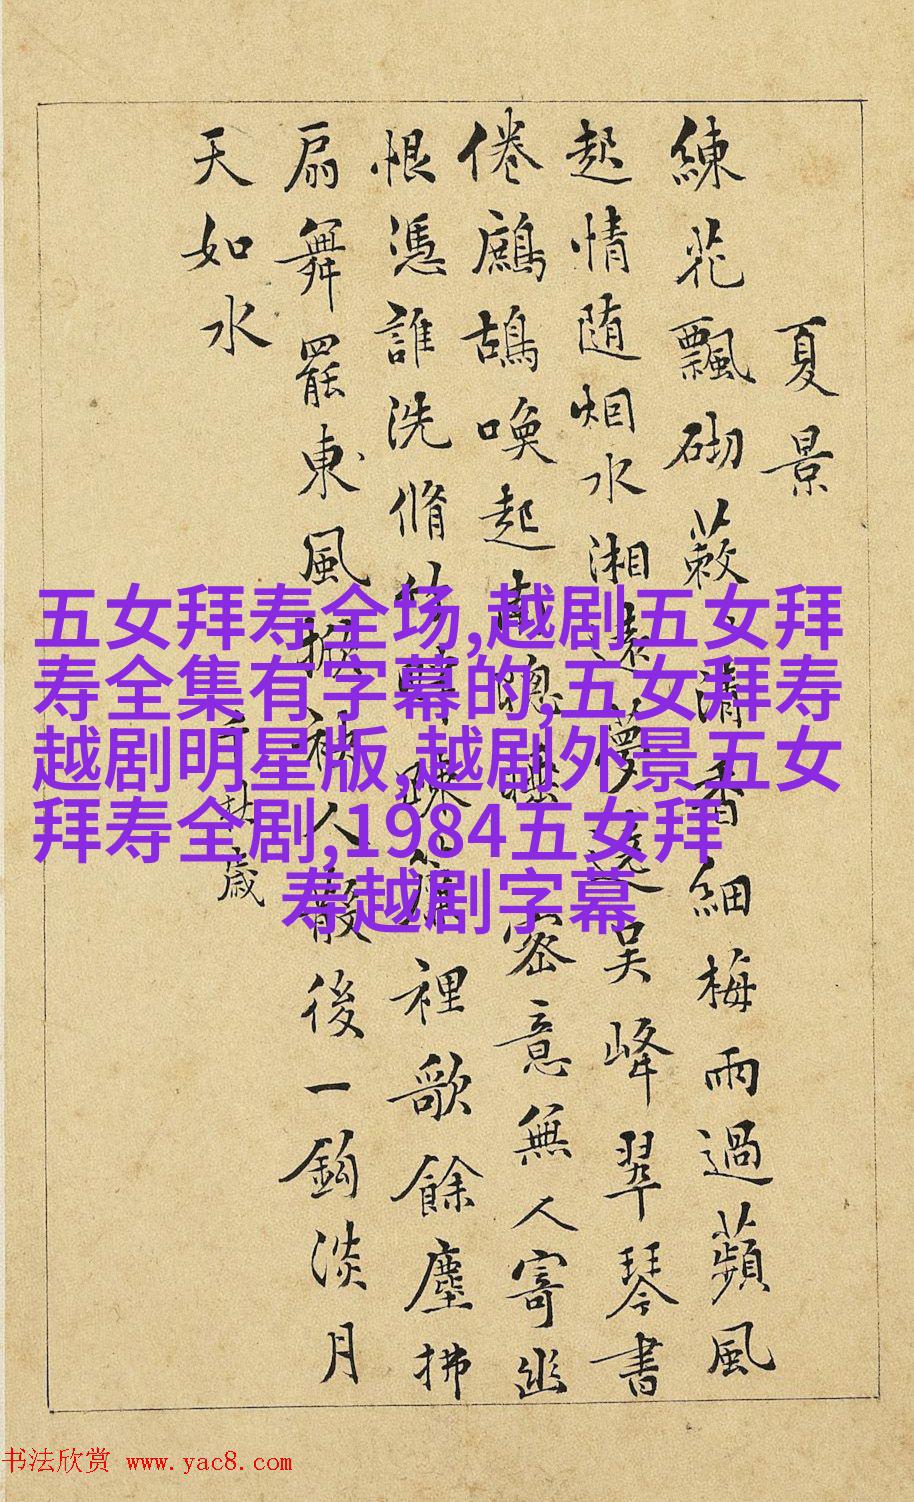 夏景
練花飄砌蔌清香細梅雨過蘋風
起情随烟水湘遠夢遶吳峰翠琴書
倦鷓鴣喚起南窻睡密意無人寄幽
恨憑誰洗脩竹畔踈簾裡歌餘塵拂
扇舞罷東風掀袂人散後一鈎淡月
天如水
歲
五女拜寿全场,越剧五女拜
寿全集有字幕的,五女拜寿
越剧明星版,越剧外景五女
拜寿全剧,1984五女拜
寿越剧字幕
书法欣赏 www.yac8.com